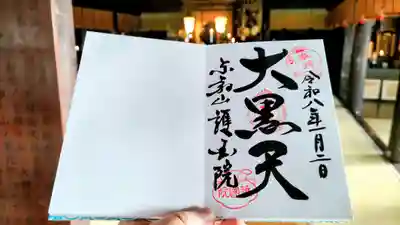 奉拝
令和八年一月二日
大黒天
東叡山 護国院